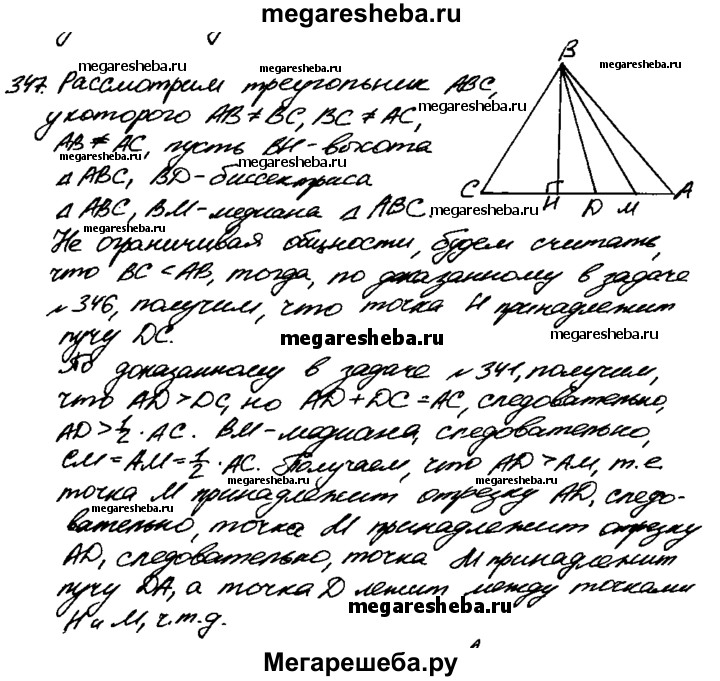 megaresheba.ru
347. Рассмотрим треугольник ABC,
megaresheba.ru
megaresheba.ru
megaresheba.ru
у которого AB ≠ BC, BC ≠ AC,
megaresheba.ru
AB ≠ AC, пусть BH - высота
megaresheba.ru
△ ABC, BD - биссектриса
△ ABC, BM - медиана △ ABC.
megaresheba.ru
megaresheba.ru
B
C
H
D
M
A
Не ограничивая общности, будем считать,
что BC < AB, тогда, по доказанному в задаче
№ 346, получим, что точка H принадлежит
лучу DC.
megaresheba.ru
megaresheba.ru
По доказанному в задаче № 341, получим,
что AD > DC, но AD + DC = AC, следовательно,
megaresheba.ru
AD > 1/2 · AC. BM - медиана, следовательно,
CM = AM = 1/2 · AC. Получаем, что AD > AM, т.е.
megaresheba.ru
точка M принадлежит отрезку AD, следо-
megaresheba.ru
вательно, точка M принадлежит отрезку
AD, следовательно, точка M принадлежит
лучу DA, а точка D лежит между точками
megaresheba.ru
H и M, ч.т.д.
A
Мегарешеба.ру